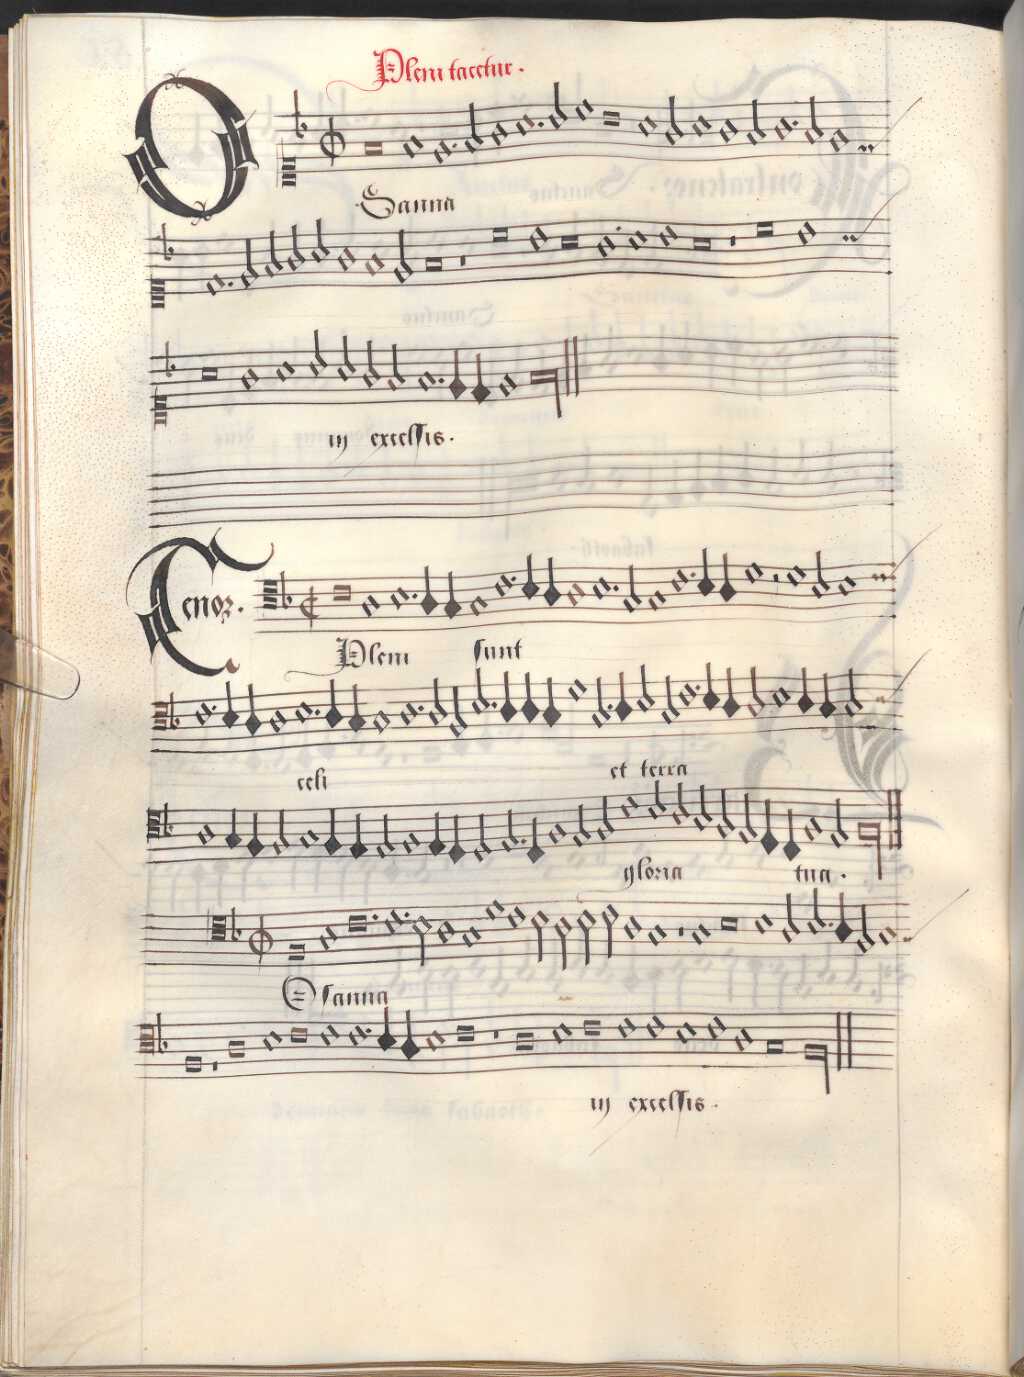 Pleni tacetur.
OSanna
in excelsis.
Tenor.
Pleni sunt
celi et terra
gloria tua.
Osanna
in excelsis.